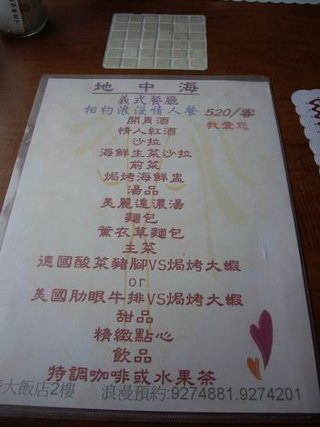 地中海
義式餐廳
相約浪漫情人餐 520/客
我愛您
開胃酒
情人紅酒
沙拉
海鮮生菜沙拉
前菜
焗烤海鮮盅
湯品
美麗達濃湯
麵包
薰衣草麵包
主菜
德國酸菜豬腳VS焗烤大蝦
or
美國肋眼牛排VS焗烤大蝦
甜品
精緻點心
飲品
特調咖啡或水果茶
大飯店2樓 浪漫預約:9274881.9274201